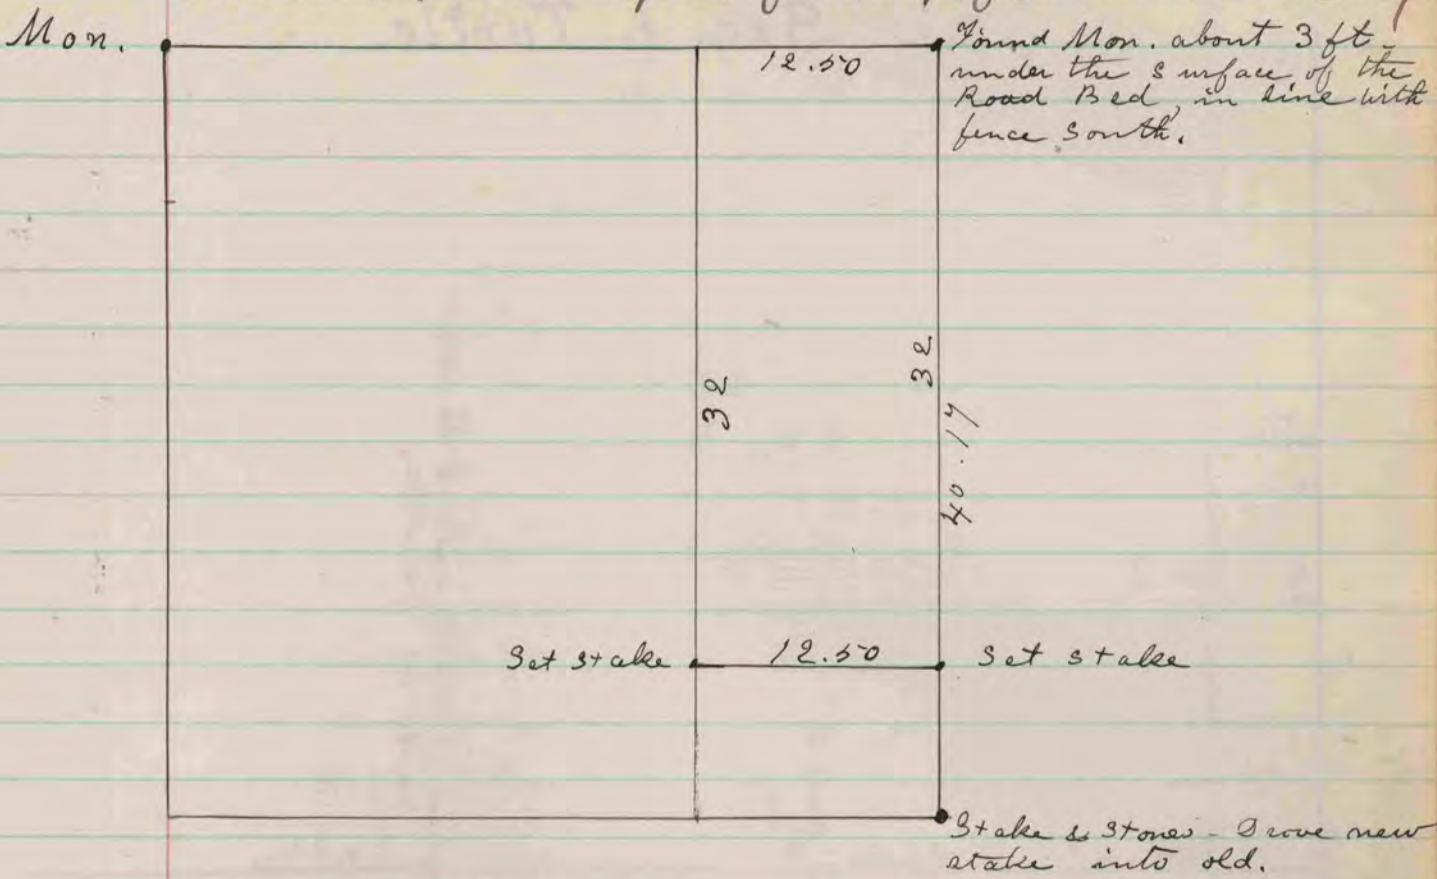 Mon.
12.50
Found Mon. about 3 ft.
under the surface of the
Road Bed, in line with
fence south.
32
32
40.17
Set stake
12.50
Set stake
Stake & Stones - Drove new
stake into old.